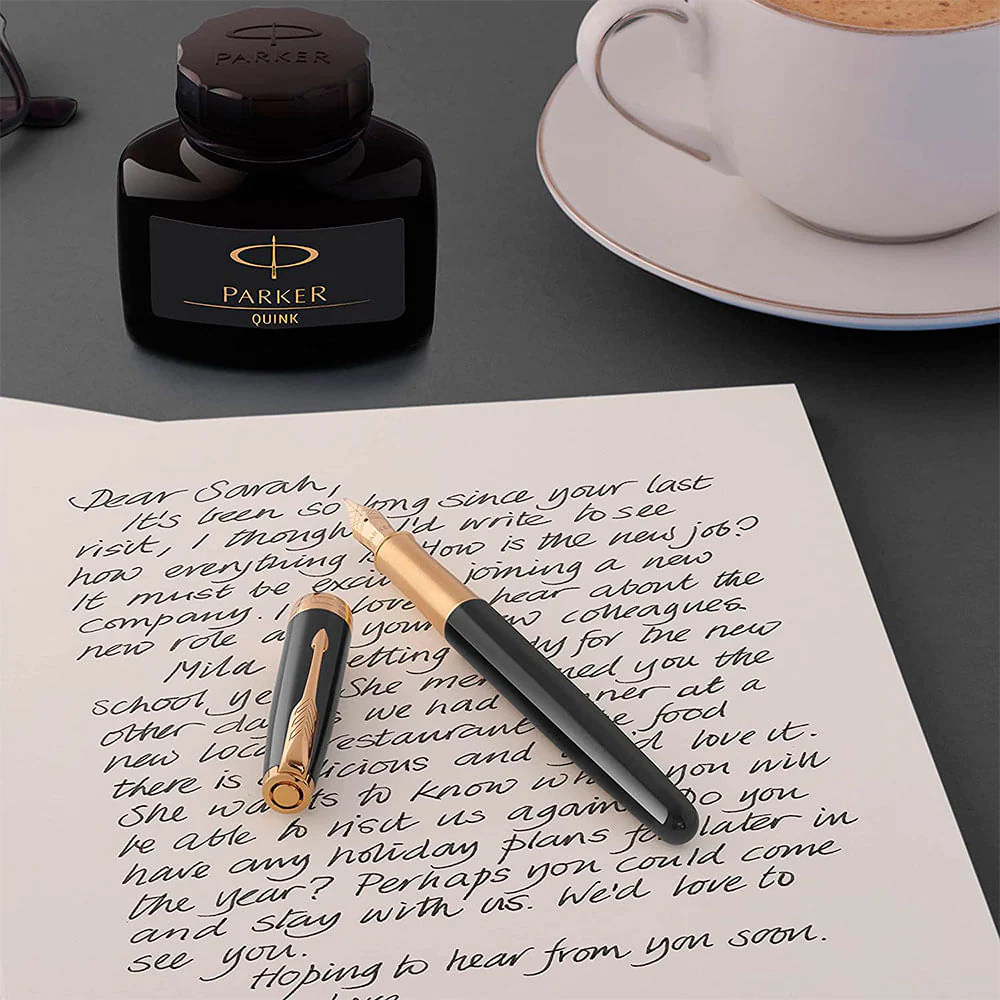 PARKER
PARKER
QUINK
Dear Sarah,
It's been so long since your last
visit, I though I'd write to see
how everything is How is the new job?
It must be exci joining a new
company. I love hear about the
new role a your colleagues
Mila etting dy for the new
school ye She men ned you the
other da we had nner at a
new loca restaurant e food
there is licious and love it.
She wa s to know wh you will
be able to visit us again Do you
have any holiday plans fo later in
the year? Perhaps you could come
and stay with us. We'd love to
see you.
Hoping to hear from you soon.
Love